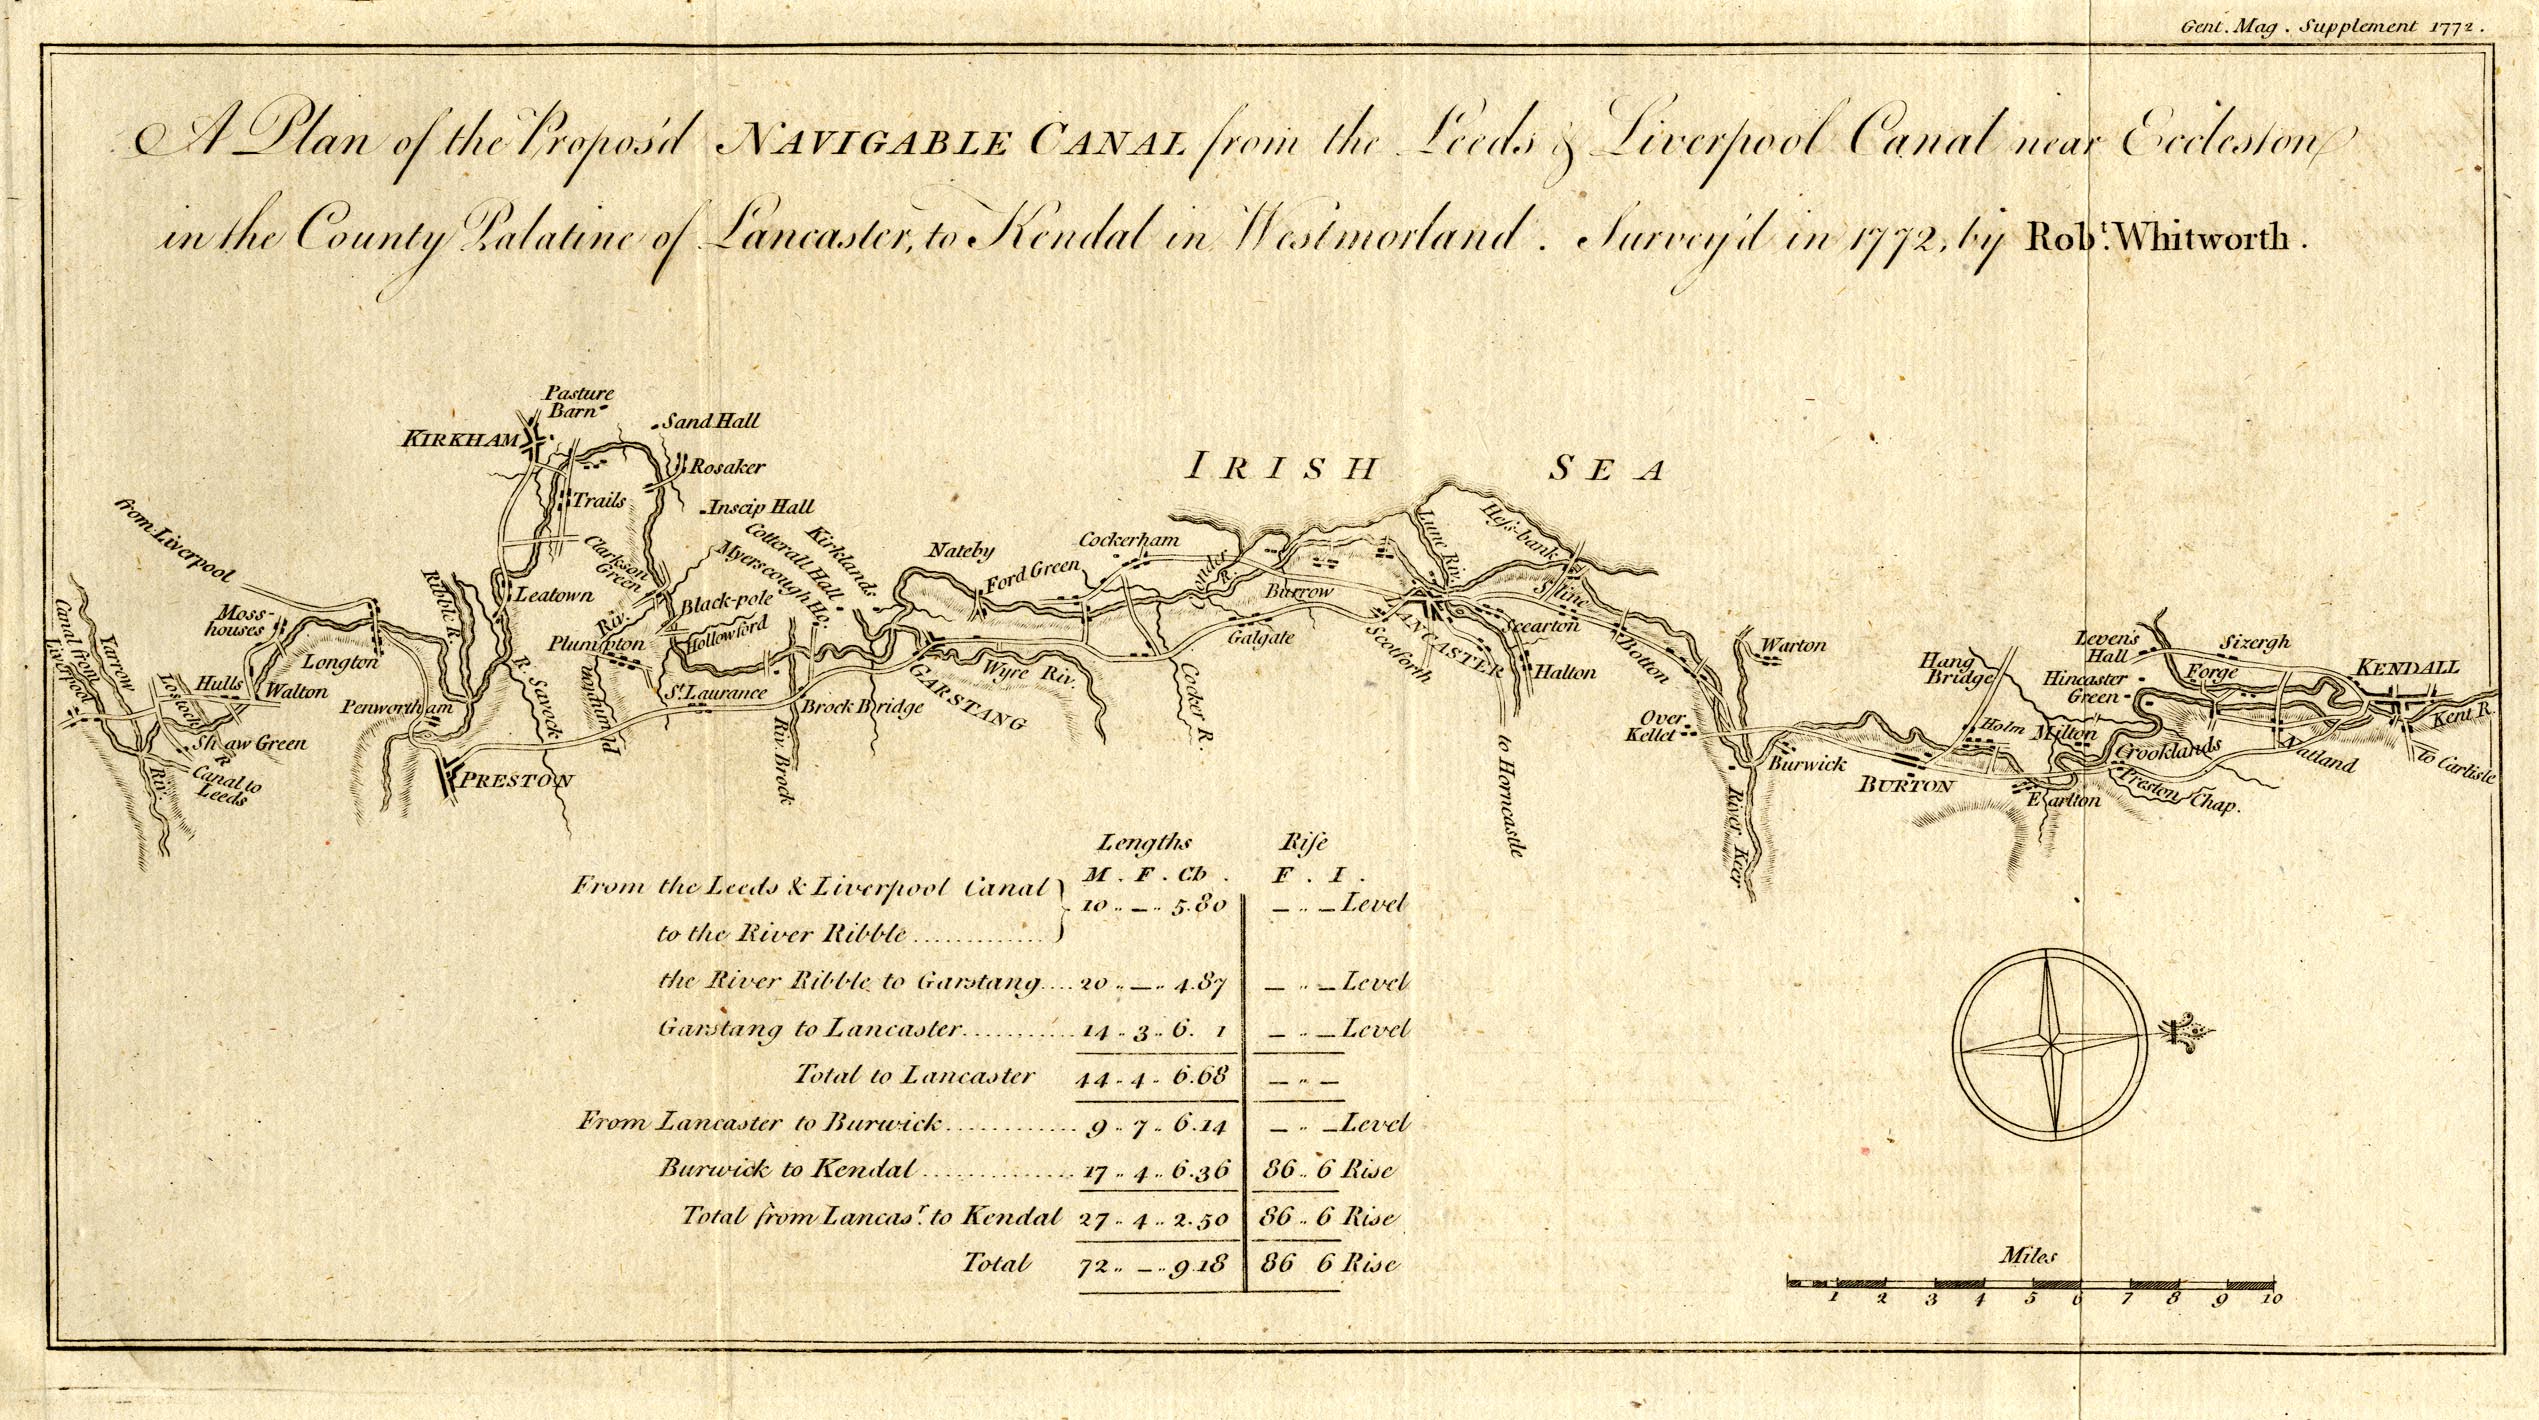 Gent. Mag. Supplement 1772.
A Plan of the Propos'd NAVIGABLE CANAL from the Leeds & Liverpool Canal near Eccleston
in the County Palatine of Lancaster, to Kendal in Westmorland. Survey'd in 1772, by Robt. Whitworth.
IRISH SEA
from Liverpool
Canal from
Liverpool
Yarrow
Riv.
Moss-
houses
Longton
Hulls
Walton
Lostock
R
Shaw Green
Canal to
Leeds
Penwortham
Ribble R.
PRESTON
KIRKHAM
Pasture
Barn
Sand Hall
Rosaker
Trails
Inscip Hall
Clarkson
Green
Leatown
R. Savock
Plumpton
Riv.
Black-pole
Hollowford
Myerscough Ho.
Cotterall Hall
Kirklands
St. Laurance
Brock Bridge
Riv. Brock
GARSTANG
Wyre Riv.
Nateby
Ford Green
Cockerham
Cocker R.
Conder
R.
Galgate
Burrow
Scotforth
LANCASTER
Lune Riv.
Hess-bank
Sline
Scearton
Halton
to Horncastle
Botton
Over
Kellet
Warton
Burwick
River Keer
BURTON
Hang
Bridge
Holm
Milton
Earlton
Preston Chap.
Crooklands
Hincaster
Green
Levens
Hall
Forge
Sizergh
Natland
KENDALL
Kent R.
to Carlisle
Lengths Rise
M. F. Ch. F. I.
From the Leeds & Liverpool Canal
to the River Ribble .............} 10 .. — .. 5.80 — .. — Level
the River Ribble to Garstang.... 20 .. — .. 4.87 — .. — Level
Garstang to Lancaster.......... 14 .. 3 .. 6. 1 — .. — Level
Total to Lancaster 44 .. 4 .. 6.68 — .. —
From Lancaster to Burwick............ 9 .. 7 .. 6.14 — .. — Level
Burwick to Kendal.............. 17 .. 4 .. 6.36 86 .. 6 Rise
Total from Lancasr. to Kendal 27 .. 4 .. 2.50 86 .. 6 Rise
Total 72 .. — .. 9.18 86 6 Rise
Miles
1 2 3 4 5 6 7 8 9 10